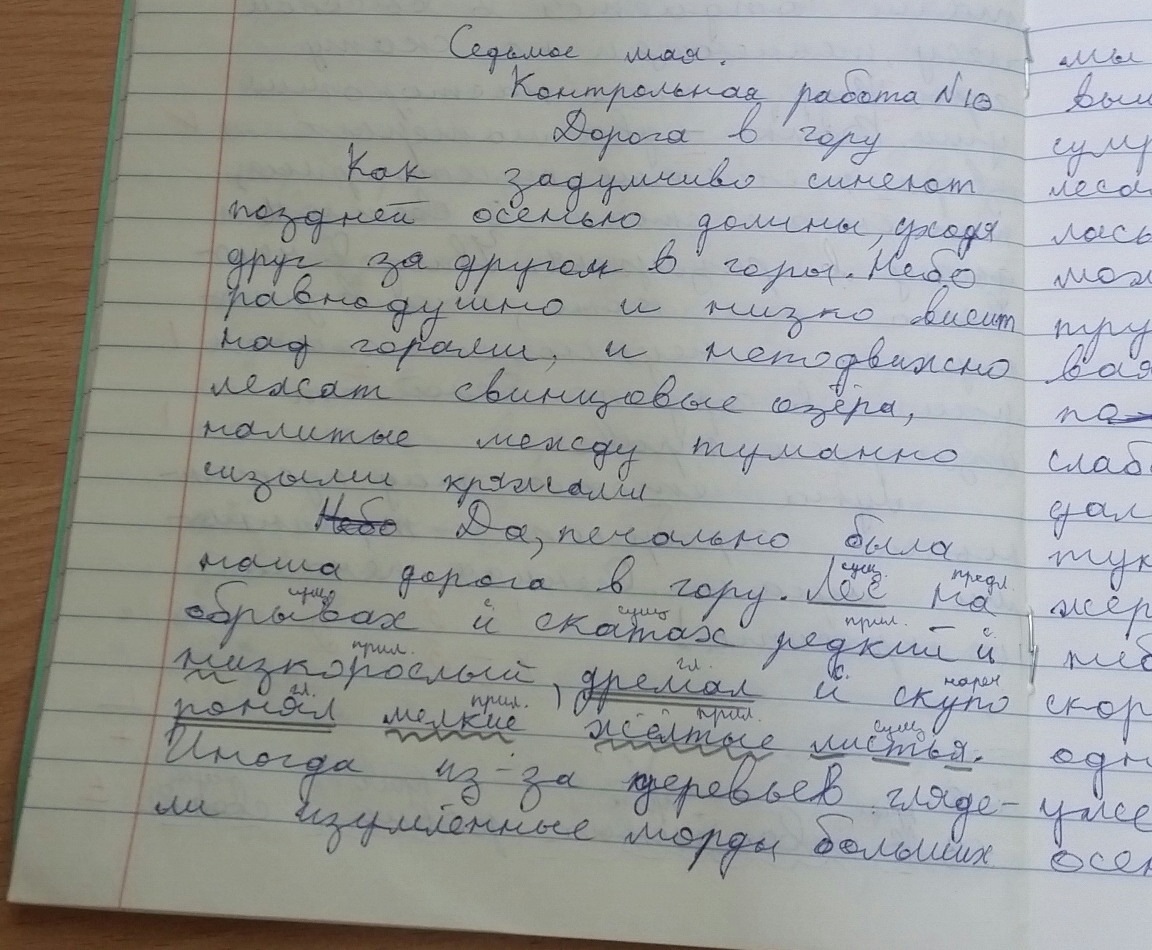 Седьмое мая.
Контрольная работа №10
Дорога в гору
Как задумчиво синеют
поздней осенью долины, уходя
друг за другом в горы. Небо
равнодушно и низко висит
над горами, и неподвижно
лежат свинцовые озёра,
налитые между туманно
сизыми кряжами
Небо Да, печально была
наша дорога в гору. Лес на
сущ. предл.
обрывах и скатах редкий и
сущ с. сущ прил. с.
низкорослый, дремал и скупо
прил. гл. с. нареч
ронял мелкие жёлтые листья.
гл. прил. прил. сущ
Иногда из-за деревьев гляде-
ли изумлённые морды больших
мы
сумр
леса
лась
мож
тру
вая
по
слаб
дал
тук
жёр
неб
скор
одн
уже
осен